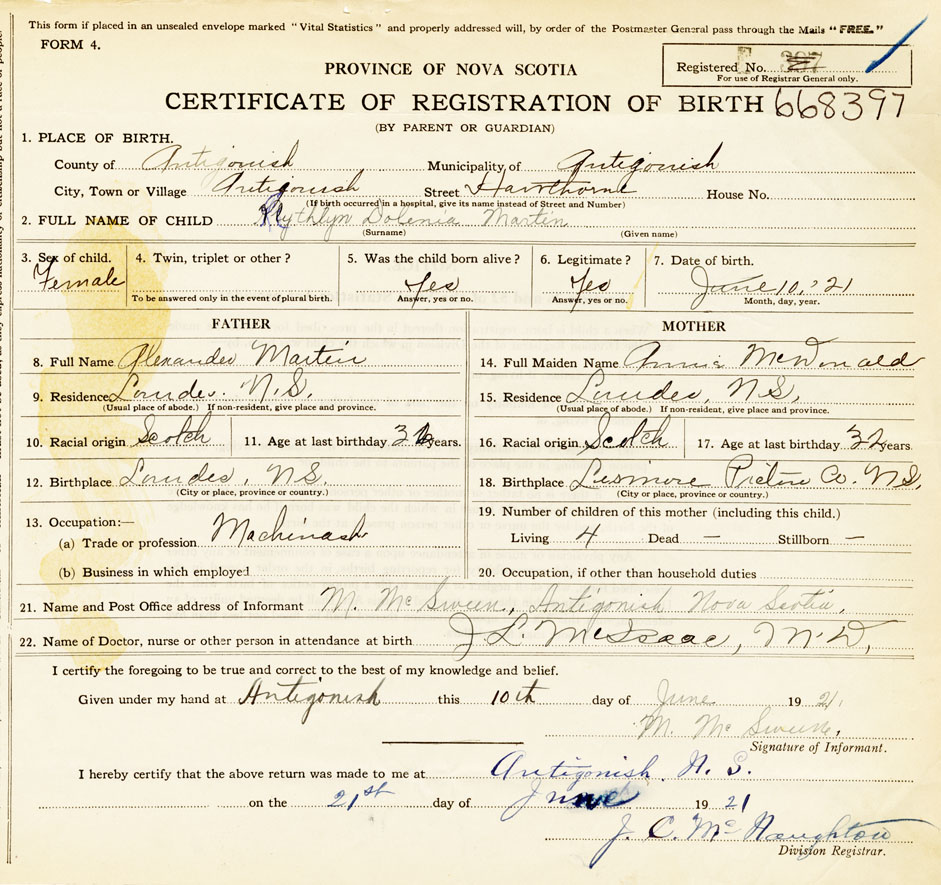 This form if placed in an unsealed envelope marked "Vital Statistics" and properly addressed will, by order of the Postmaster General pass through the Mails "FREE."
FORM 4.
Registered No. 327
For use of Registrar General only.
PROVINCE OF NOVA SCOTIA
CERTIFICATE OF REGISTRATION OF BIRTH 668397
(BY PARENT OR GUARDIAN)
1. PLACE OF BIRTH.
County of Antigonish Municipality of Antigonish
City, Town or Village Antigonish Street Hawthorne House No.
(If birth occurred in a hospital, give its name instead of Street and Number)
2. FULL NAME OF CHILD Dolenia Martin
(Surname) (Given name)
3. Sex of child. 4. Twin, triplet or other? 5. Was the child born alive? 6. Legitimate? 7. Date of birth.
Female Yes Yes June 10, '21
To be answered only in the event of plural birth. Answer, yes or no. Answer, yes or no. Month, day, year.
FATHER MOTHER
8. Full Name Alexander Martin 14. Full Maiden Name Annie McDonald
9. Residence Lourdes. N.S. 15. Residence Lourdes, N.S,
(Usual place of abode.) If non-resident, give place and province. (Usual place of abode.) If non-resident, give place and province.
10. Racial origin Scotch 11. Age at last birthday years. 16. Racial origin Scotch 17. Age at last birthday 32 years.
12. Birthplace Lourdes, N.S. 18. Birthplace Lismore Pictou Co. N.S,
(City or place, province or country.) (City or place, province or country.)
13. Occupation:— 19. Number of children of this mother (including this child.)
(a) Trade or profession Machinash Living 4 Dead — Stillborn —
(b) Business in which employed 20. Occupation, if other than household duties
21. Name and Post Office address of Informant M. McSween, Antigonish Nova Scotia,
22. Name of Doctor, nurse or other person in attendance at birth J L. McIsaac, M.D,
I certify the foregoing to be true and correct to the best of my knowledge and belief.
Given under my hand at Antigonish this 10th day of June 1921.
M. McSween,
Signature of Informant.
I hereby certify that the above return was made to me at Antigonish N. S.
on the 21st day of June 1921
J. C. McNaughton
Division Registrar.